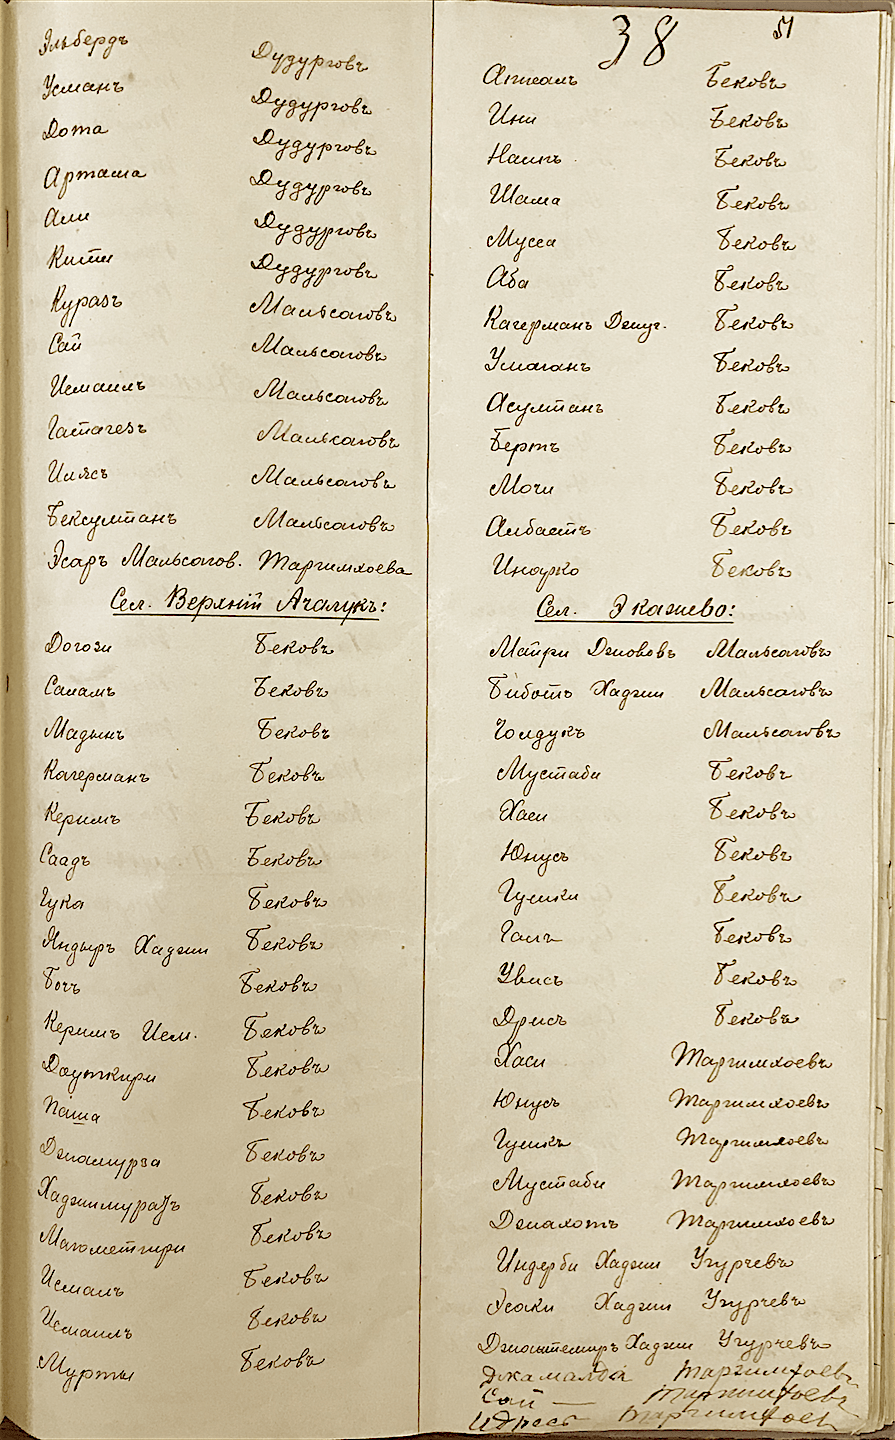 Эльбердъ Дудурговъ
Усманъ Дудурговъ
Дота Дудурговъ
Арташа Дудурговъ
Али Дудурговъ
Кити Дудурговъ
Куразъ Мальсаговъ
Сай Мальсаговъ
Исмаилъ Мальсаговъ
Гатагезъ Мальсаговъ
Иліясъ Мальсаговъ
Бексултанъ Мальсаговъ
Эсаръ Мальсагов. Таргимхоева
Сел. Верхній Ачалукъ:
Догози Бековъ
Саламъ Бековъ
Мадынъ Бековъ
Кагерманъ Бековъ
Керимъ Бековъ
Саадъ Бековъ
Гука Бековъ
Яндыръ Хаджи Бековъ
Бочъ Бековъ
Керимъ Исм. Бековъ
Доуткири Бековъ
Паша Бековъ
Джамурза Бековъ
Хаджимуратъ Бековъ
Магометгири Бековъ
Исмаилъ Бековъ
Исмаилъ Бековъ
Мурты Бековъ
38 51
Бековъ
Ини Бековъ
Наипъ Бековъ
Шама Бековъ
Мусса Бековъ
Аба Бековъ
Кагерманъ Бековъ
Умаганъ Бековъ
Асултанъ Бековъ
Бертъ Бековъ
Мочи Бековъ
Албастъ Бековъ
Инарко Бековъ
Сел. Экажево:
Майри Мальсаговъ
Биботъ Хаджи Мальсаговъ
Голдукъ Мальсаговъ
Мустаби Бековъ
Хаси Бековъ
Юнусъ Бековъ
Гушки Бековъ
Бековъ
Увисъ Бековъ
Дрисъ Бековъ
Хаси Таргимхоевъ
Юнусъ Таргимхоевъ
Гушкъ Таргимхоевъ
Мустаби Таргимхоевъ
Джахотъ Таргимхоевъ
Индерби Хаджи Угурчевъ
Эсаки Хаджи Угурчевъ
Джантемиръ Хаджи Угурчевъ
Джамалда Таргимхоевъ
Сай — Таргимхоевъ
Идресъ Таргимхоевъ